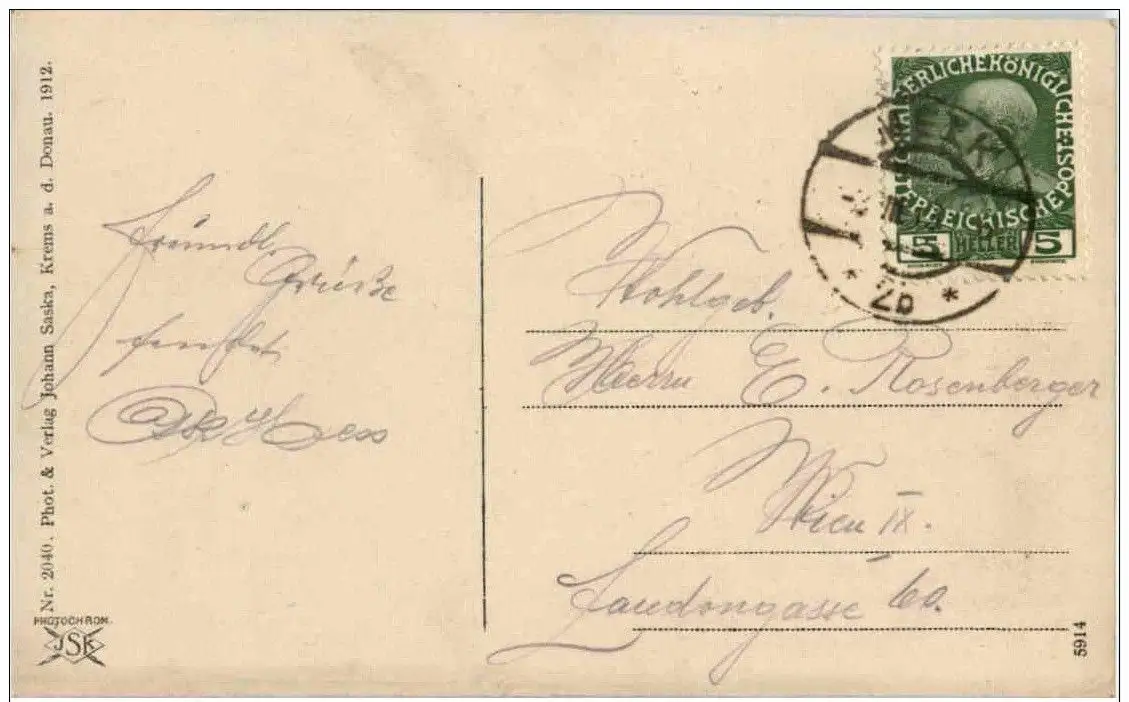 Nr. 2040. Phot. & Verlag Johann Saska, Krems a. d. Donau. 1912.
PHOTOCHROM.
JSK
Freundl.
Grüße
Wohlgeb.
Herrn E. Rosenberger
Wien IX.
Laudongasse 60.
KAISERLICHE KÖNIGLICHE
ÖSTERREICHISCHE POST
5 HELLER 5
5914